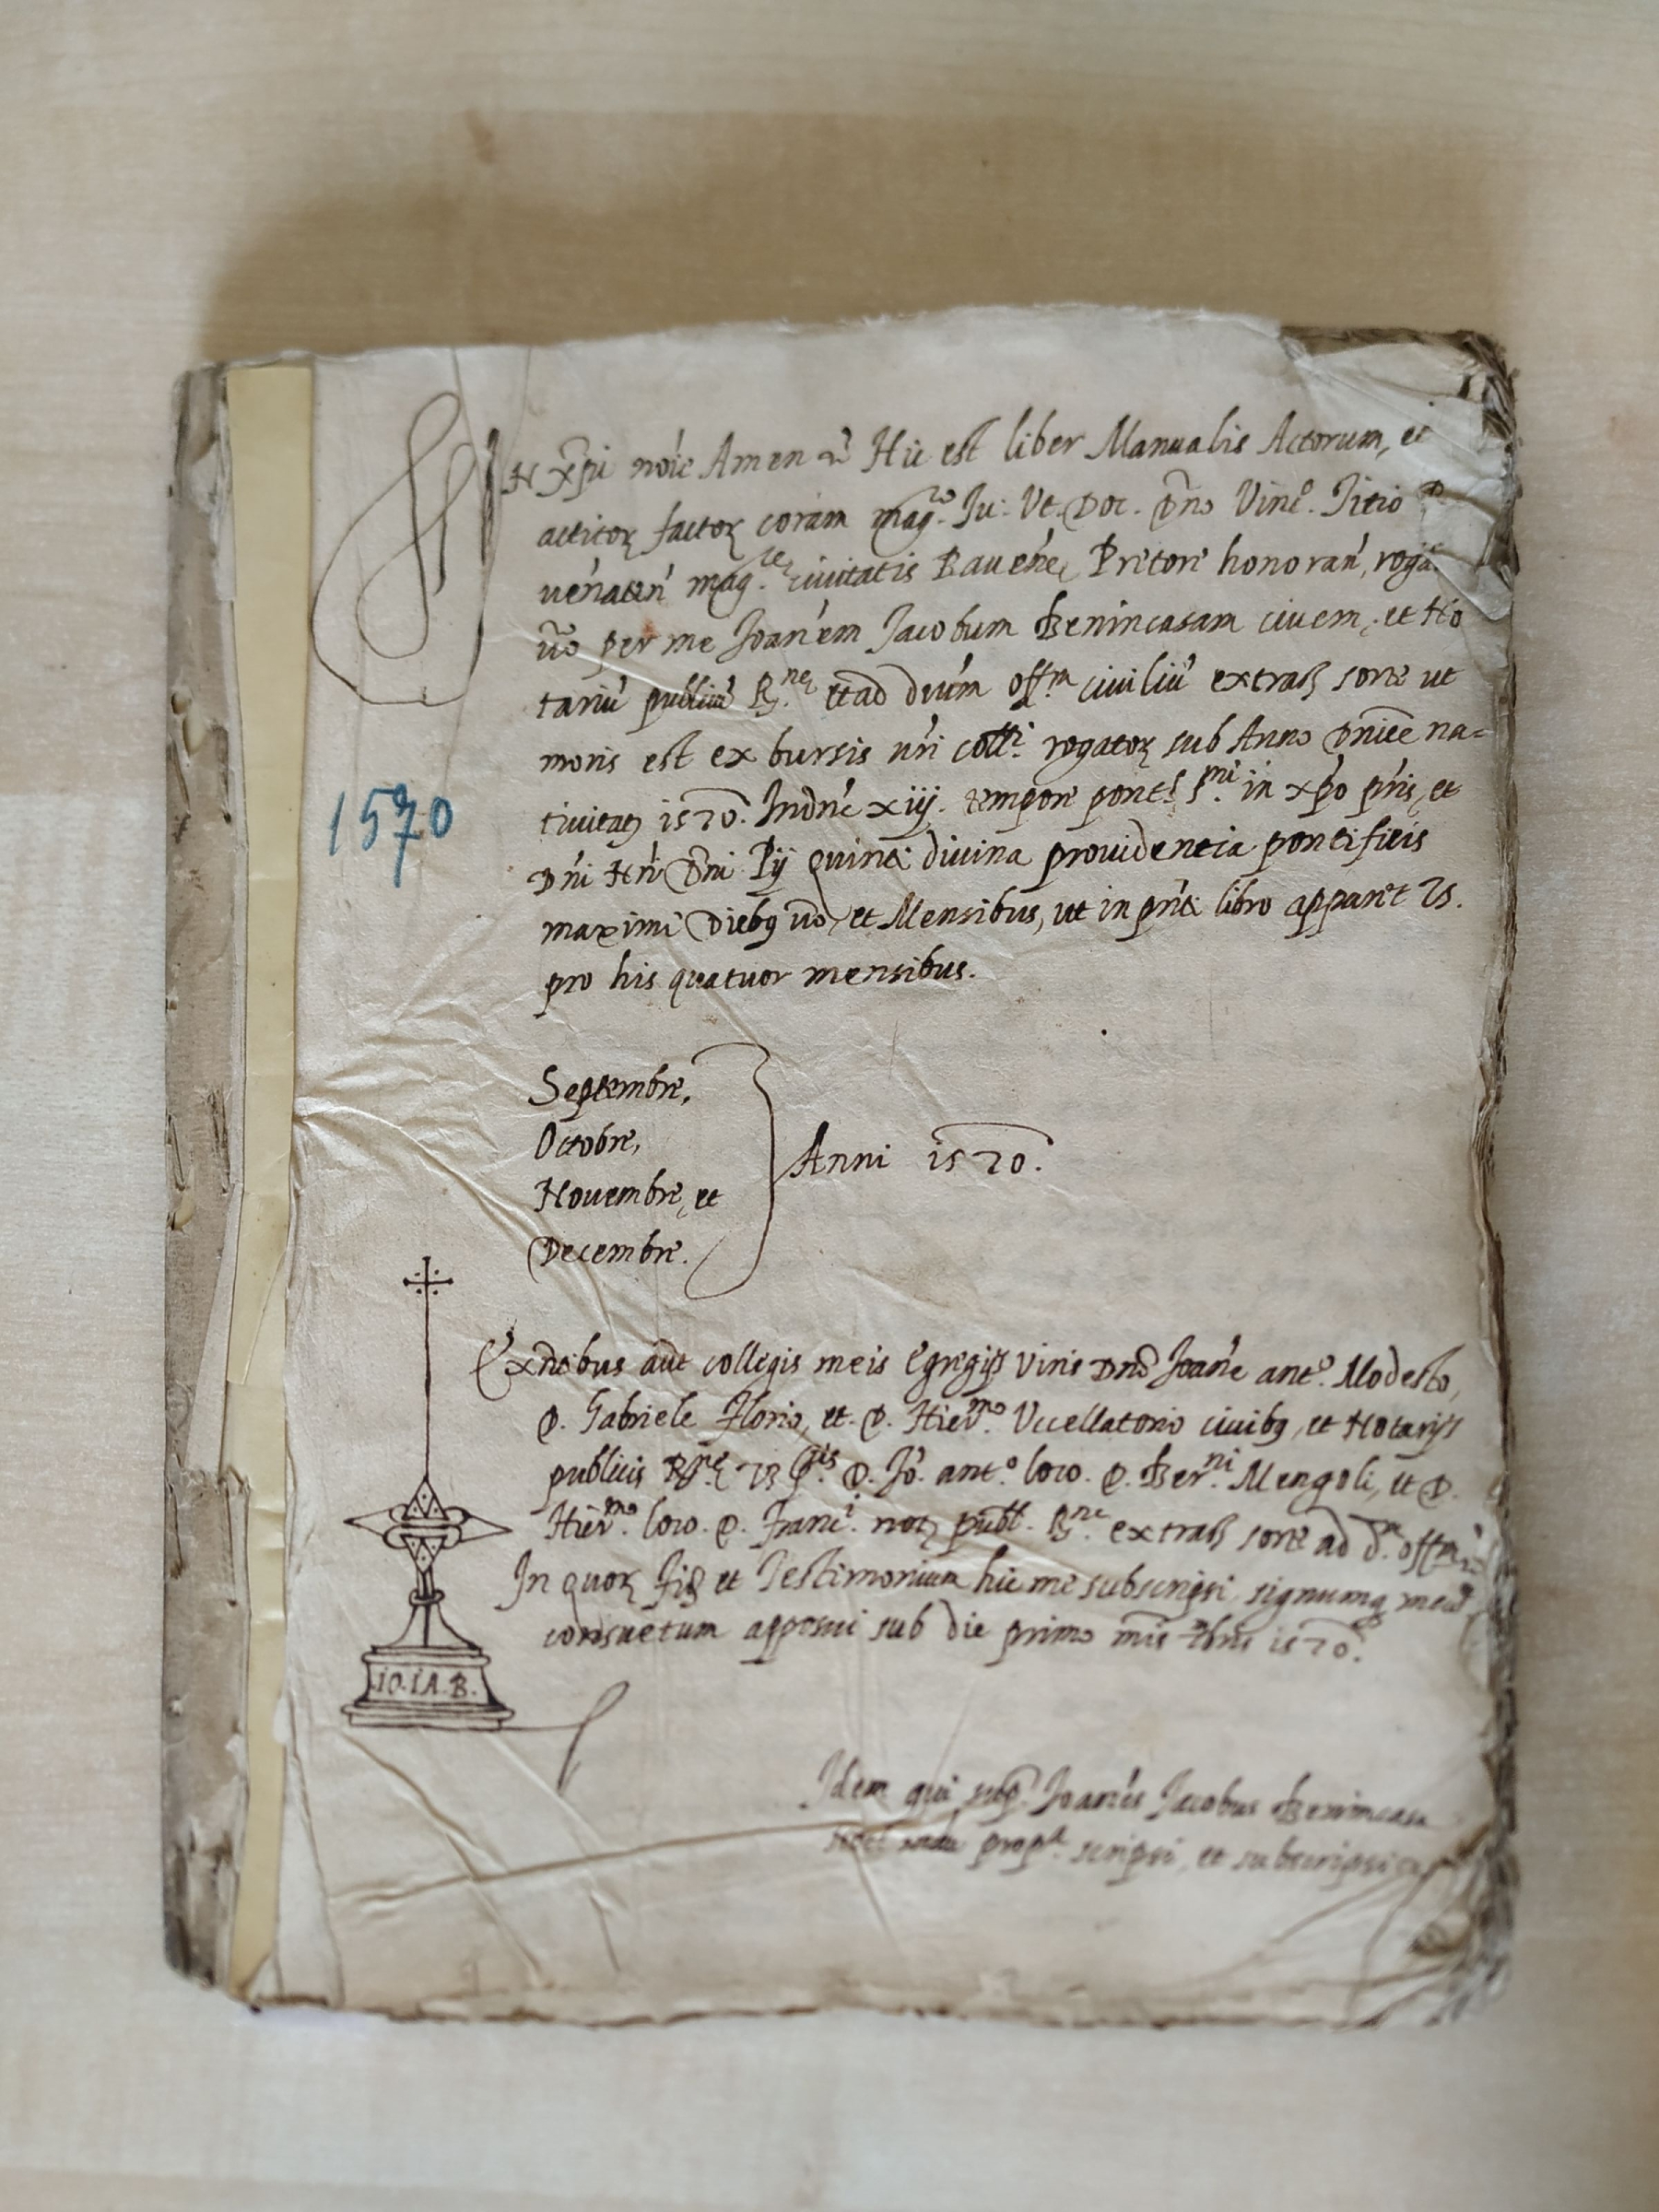 IN Xp̄i nōie Amen Hic est liber Manualis Actorum, et
actitoꝝ factoꝝ coram mag.co Iu. Vt. Doc. Dn̄o Vinc.o Titio
mag.ce ciuitatis Rauen̄e, Pretore honoran̄, roga
uō per me Ioan̄em Jacobum Benincasam ciuem, et No
tariū publicū R.ne et ad off.m ciuiliū extract sorte ut
moris est ex bursis nr̄i coll.i rogatoꝝ sub Anno Dn̄ice na=
tiuitatꝭ 1570. Indn̄e xiij. tempore pont.s S.mi in xp̄o pr̄is, et
Dn̄i Nr̄i Dn̄i Pij quinti diuina prouidentia pontificis
maximi Diebꝰ uō, et Mensibus, ut in libro apparet
pro his quatuor mensibus.
Septembre,
Octobre,
Nouembre, et
Decembre.
Anni 1570.
1570
Exn̄tibus aūt collegis meis Egregijs viris Dn̄o Ioan̄e ant.o Modesto,
D. Gabriele Florio, et D. Hier.mo Vccellatorio ciuibꝰ, et Notarijs
publicis D. Io. ant.o loco D. Ber.ni Mengoli, et D.
Hier.mo loco D. Franc.i publ. R.ne extract sorte ad
In quoꝝ fid et Testimonium hic me subscripsi signumqꝫ meū
consuetum apposui sub die primo 1570.
IO. IA. B.
Idem qui sup. Ioan̄es Jacobus Benincasa
prop.a scripsi, et subscripsi